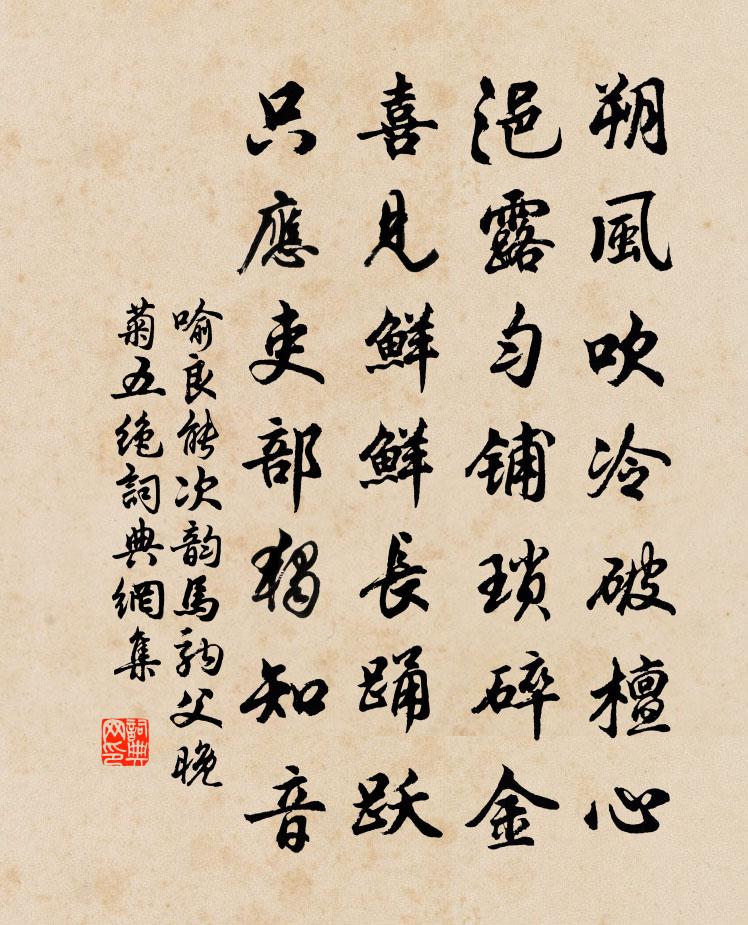 朔風吹冷破檀心
浥露勻鋪瑣碎金
喜見鮮鮮長踊跃
只應吏部獨知音
喻良能次韵馬父晚
菊五絕詞典網集
詞典网印